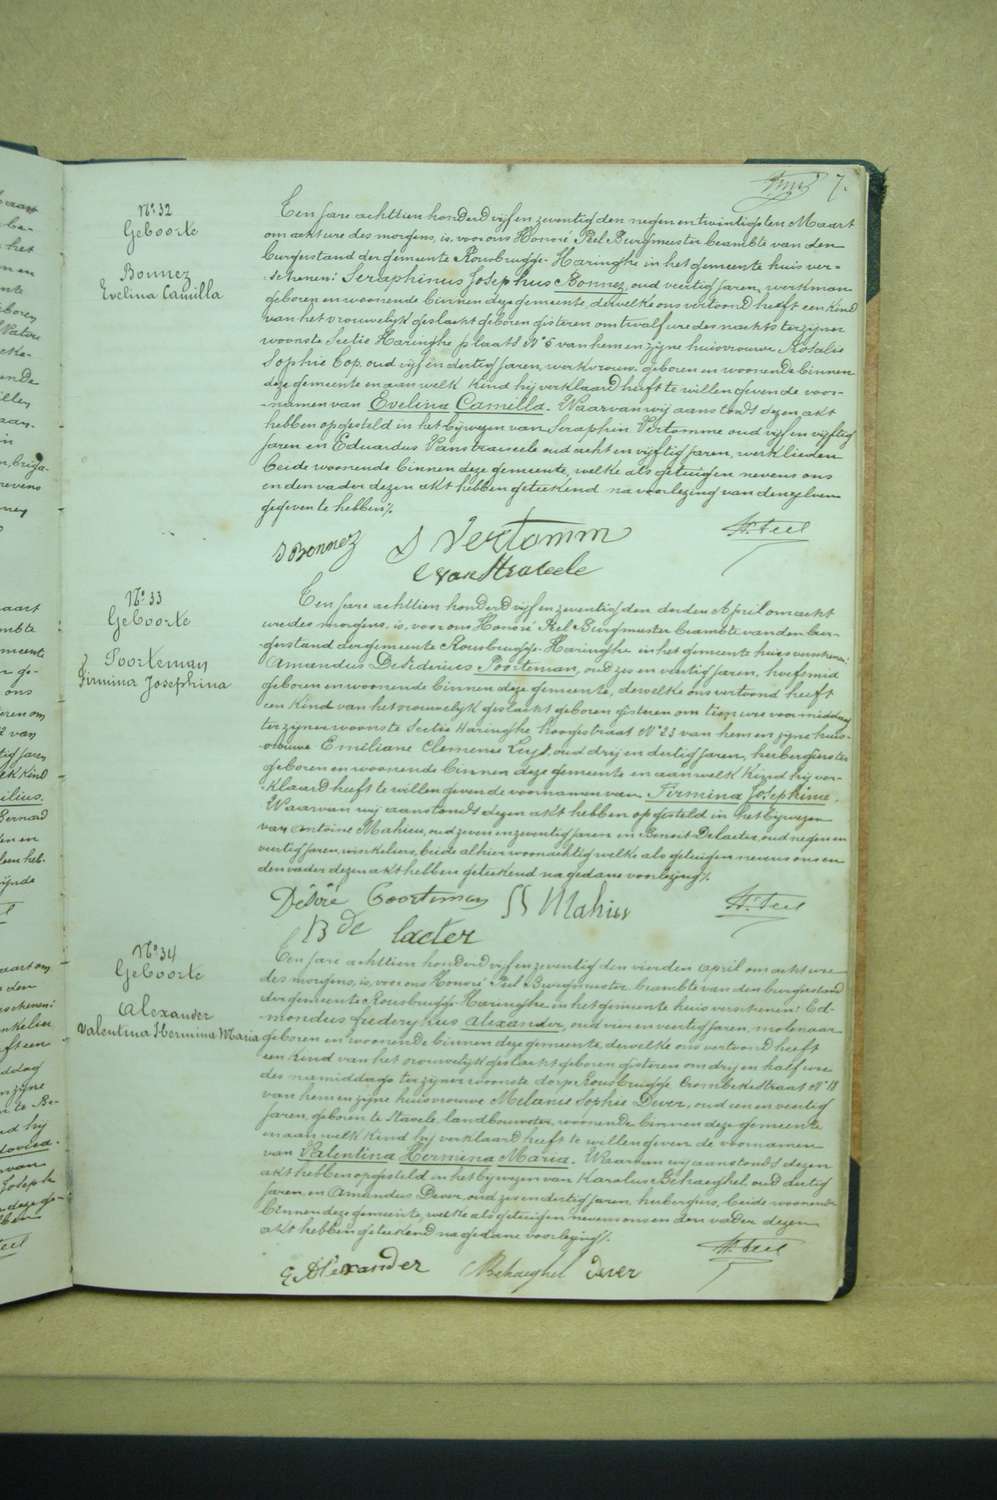 7.
N° 32
Geboorte
Bonnez
Evelina Camilla
Een jare achttien honderd vijf en zeventig den negen en twintigsten Maart
om acht ure des morgens, is, voor ons Honoré Peel Burgmeester beambte van den
burgerstand der gemeente Rousbrugge-Haringhe in het gemeente huis ver-
-schenen: Seraphinus Josephus Bonnez, oud veertig jaren, werkman
geboren en woonende binnen deze gemeente, dewelke ons vertoond heeft een kind
van het vrouwelijk geslacht geboren gisteren om twalf ure des nachts ter zijner
woonste Sectie Haringhe plaats N° 5 van hem en zijne huisvrouwe Rosalie
Sophie Cop, oud vijf en dertig jaren, werkvrouw, geboren en woonende binnen
deze gemeente en aan welk kind hij verklaard heeft te willen geven de voor-
-namen van Evelina Camilla. Waarvan wij aanstonds dezen akt
hebben opgesteld in het bijwezen van Seraphin Vertomme oud vijf en vijftig
jaren en Eduardus Vanstraeseele oud acht en vijftig jaren, werklieden
beide woonende binnen deze gemeente, welke als getuigen nevens ons
en den vader dezen akt hebben geteekend na voorlezing van denzelven
gegeven te hebben ./.
S Bonnez S Vertomm H. Peel
E van Straeele
N° 33
Geboorte
Poorteman
Firmina Josephina
Een jare achttien honderd vijf en zeventig den derden April om acht
ure des morgens, is, voor ons Honoré Peel Burgmeester beambte van den bur-
-gerstand der gemeente Rousbrugge-Haringhe in het gemeente huis verschenen:
Amandus Desiderius Poorteman, oud zes en veertig jaren, hoefsmid
geboren en woonende binnen deze gemeente, dewelke ons vertoond heeft
een kind van het vrouwelijk geslacht geboren gisteren om tien ure voormiddag
ter zijner woonste Sectie Haringhe hoogestraat N° 22 van hem en zijne huis-
-vrouwe Emeliane Clemence Leys, oud drij en dertig jaren, herbergierster
geboren en woonende binnen deze gemeente en aan welk kind hij ver-
-klaard heeft te willen geven de voornamen van Firmina Josephina.
Waarvan wij aanstonds dezen akt hebben opgesteld in het bijwezen
van Antoine Mahieu, oud zeven en zeventig jaren en Benoit Delaeter, oud negen en
veertig jaren, winkeliers, beide alhier woonachtig welke als getuigen nevens ons en
den vader dezen akt hebben geteekend na gedane voorlezing ./.
Désiré Poorteman Mahieu H. Peel
B de laeter
N° 34
Geboorte
Alexander
Valentina Hermina Maria
Een jare achttien honderd vijf en zeventig den vierden April om acht ure
des morgens, is, voor ons Honoré Peel Burgmeester beambte van den burgerstand
der gemeente Rousbrugge-Haringhe in het gemeente huis verschenen: Ed-
-mondus frederykus Alexander, oud vier en veertig jaren, molenaar
geboren en woonende binnen deze gemeente, dewelke ons vertoond heeft
een kind van het vrouwelijk geslacht geboren gisteren om drij en half ure
des namiddags ter zijner woonste dorp Rousbrugge Crombekestraat N° 18
van hem en zijne huisvrouwe Melanie Sophie Dever, oud een en veertig
jaren, geboren te Stavele, landbouwster, woonende binnen deze gemeente
en aan welk kind hij verklaard heeft te willen geven de voornamen
van Valentina Hermina Maria. Waarvan wij aanstonds dezen
akt hebben opgesteld in het bijwezen van Karolus Behaeghel oud dertig
jaren, en Amandus Dever, oud zes en dertig jaren, herbergiers, beide woonende
binnen deze gemeente, welke als getuigen nevens ons en den vader dezen
akt hebben geteekend na gedane voorlezing ./.
H. Peel
E Alexander Behaeghel Dever